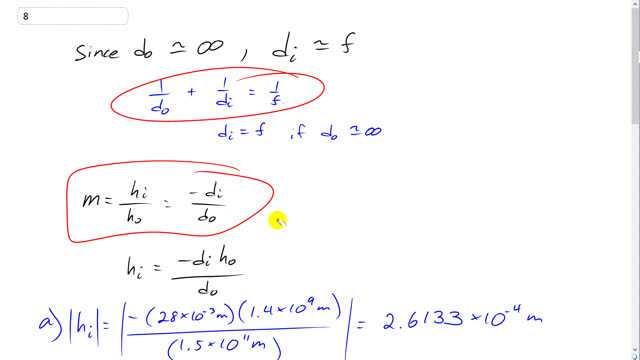 8
Since do ≃ ∞ , di ≃ f
1/do + 1/di = 1/f
di = f if do ≃ ∞
m = hi/ho = -di/do
hi = -di ho/do
a) |hi| = |-(28×10⁻³m)(1.4×10⁹m)/(1.5×10¹¹m)| = 2.6133×10⁻⁴ m